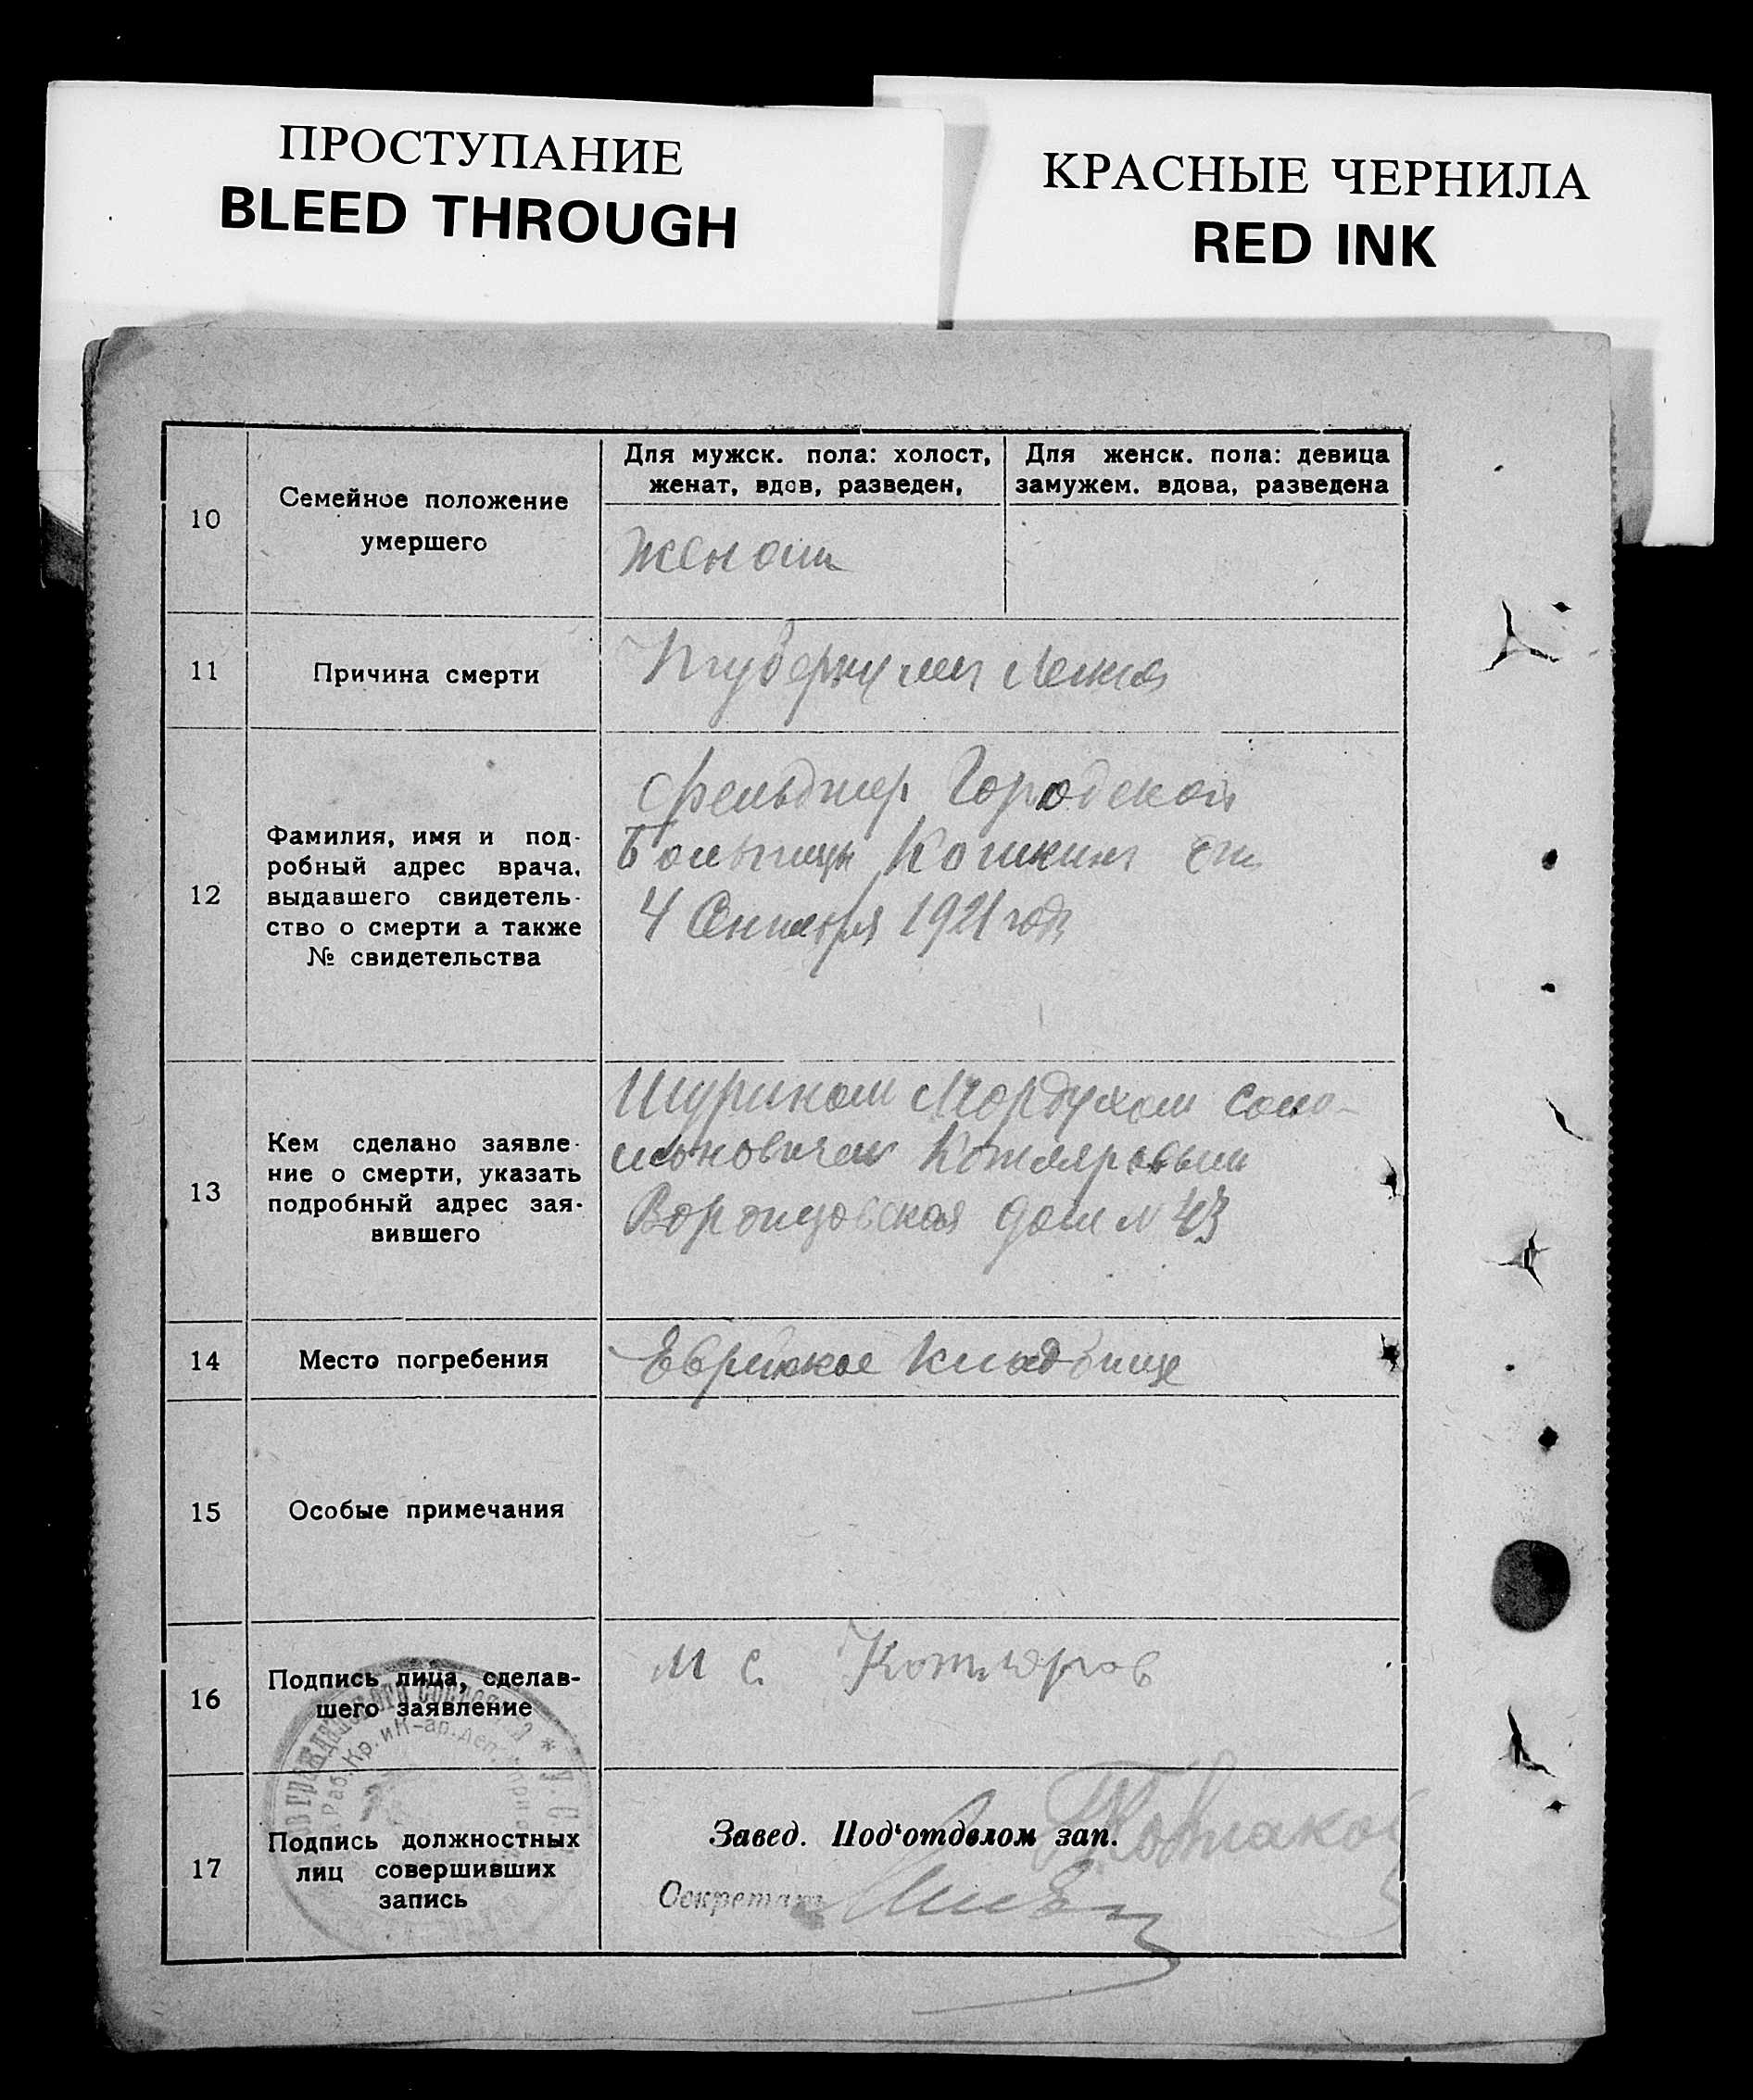 ПРОСТУПАНИЕ
BLEED THROUGH
КРАСНЫЕ ЧЕРНИЛА
RED INK
10
Семейное положение
умершего
Для мужск. пола: холост,
женат, вдов, разведен,
Для женск. пола: девица
замужем. вдова, разведена
Женат
11
Причина смерти
Туберкулез легких
12
Фамилия, имя и под-
робный адрес врача,
выдавшего свидетель-
ство о смерти а также
№ свидетельства
Фельдшер Городской
Больницы Кошкин от
4 Сентября 1921 года
13
Кем сделано заявле-
ние о смерти, указать
подробный адрес зая-
вившего
Шурином Мордухом Соло-
моновичем Котляровым
Воронцовская дом № 43
14
Место погребения
Еврейское кладбище
15
Особые примечания
16
Подпись лица, сделав-
шего заявление
М С. Котляров
17
Подпись должностных
лиц совершивших
запись
Завед. Под'отделом зап.
Секретарь